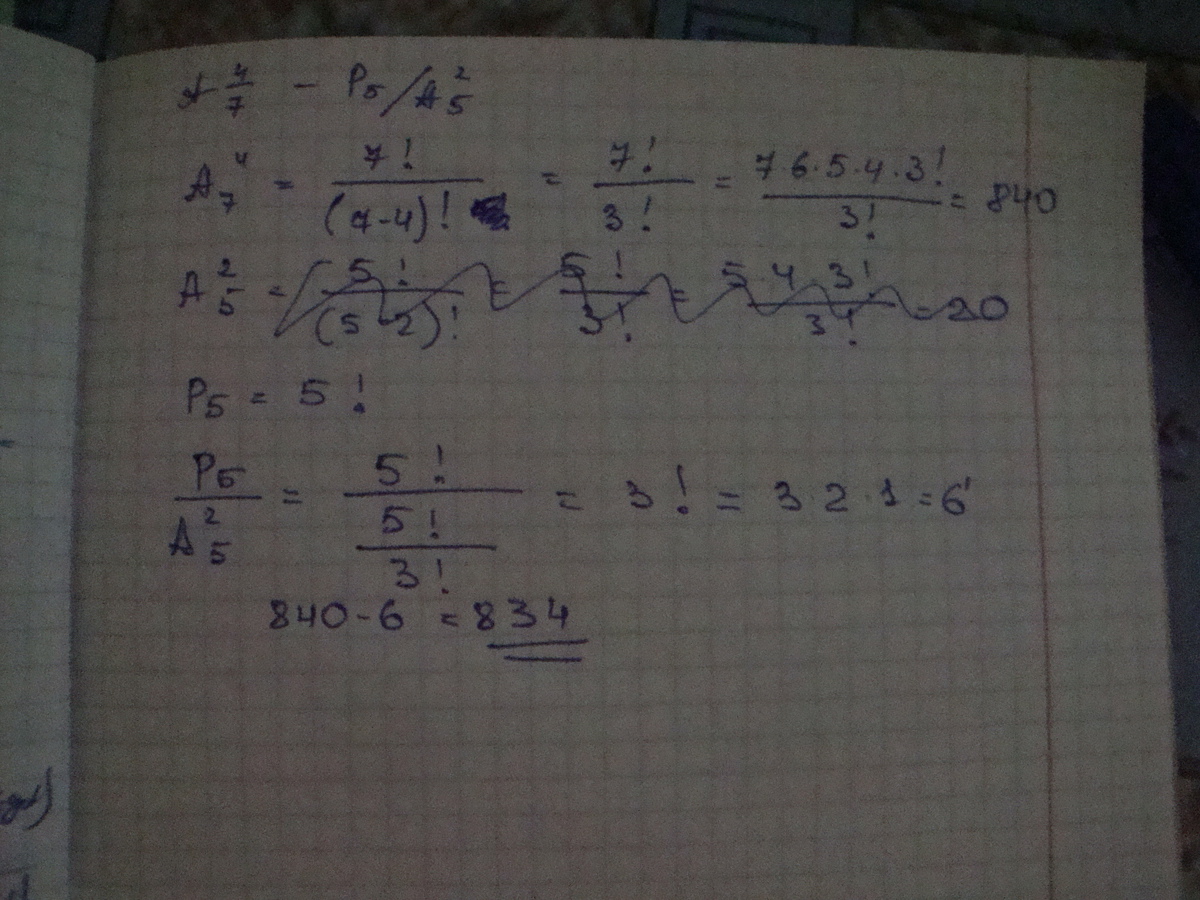 A 4/7 - P5/A5^2
A7^4 = 7!/(7-4)! = 7!/3! = 7·6·5·4·3!/3! = 840
A5^2 = 5!/(5-2)! = 5!/3! = 5 4 3!/3! = 20
P5 = 5!
P5/A5^2 = 5!/(5!/3!) = 3! = 3·2·1 = 6
840-6 = 834